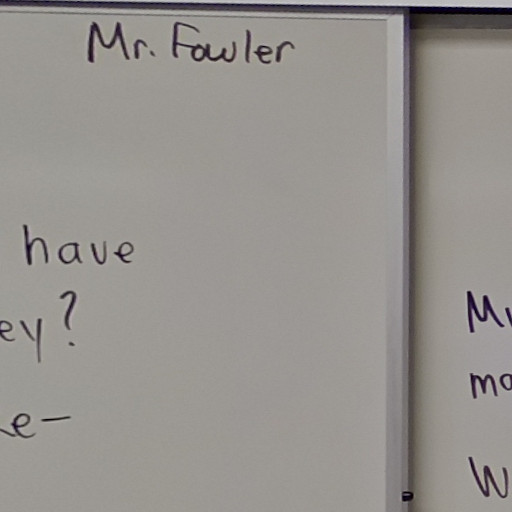 Mr. Fowler
have
ey?
e-
M
mo
W